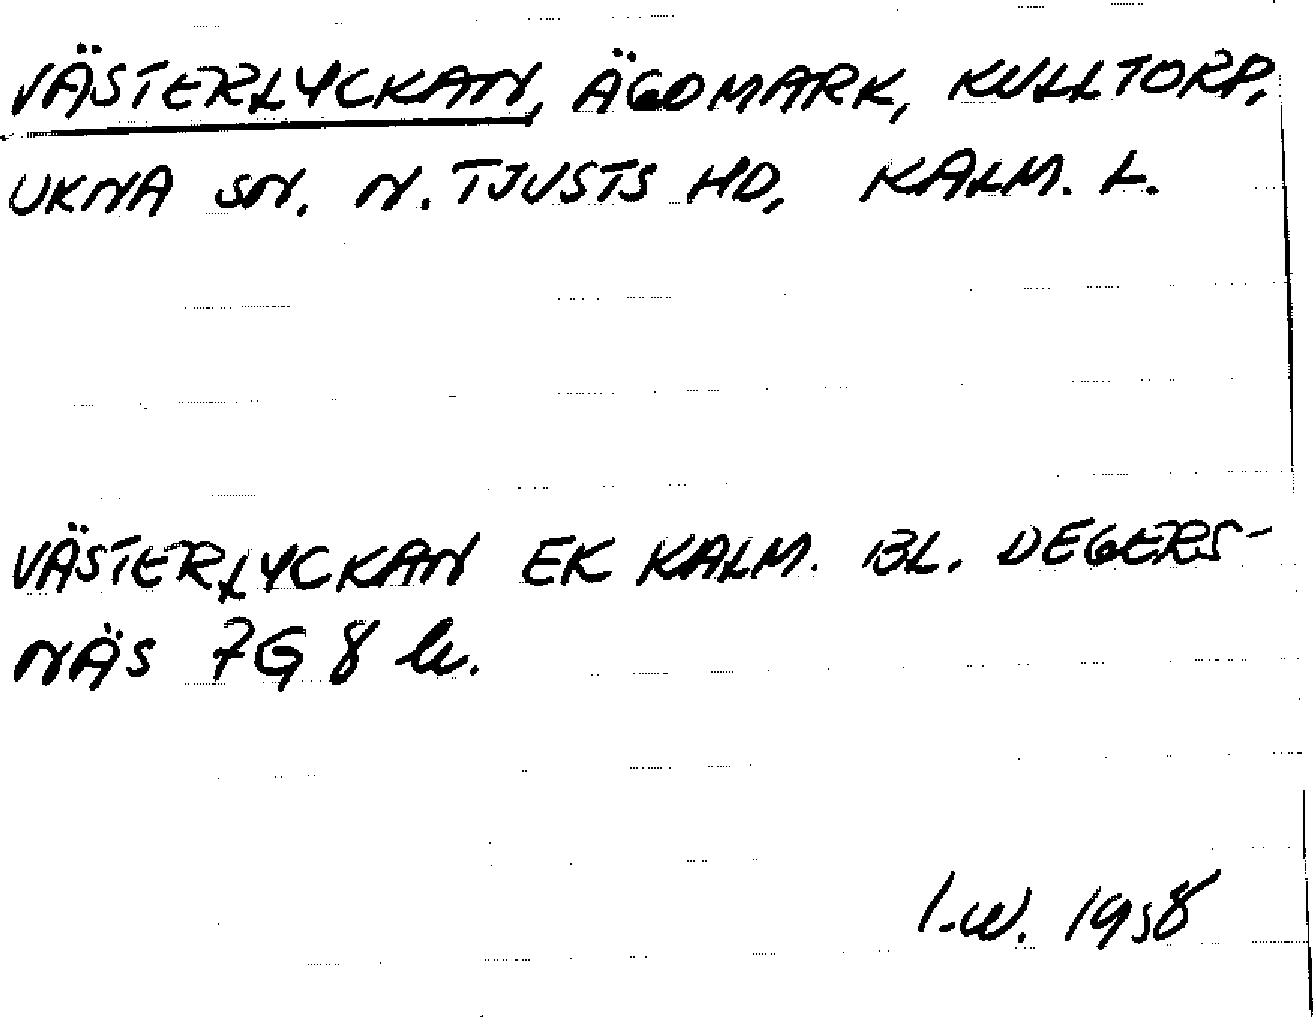 VÄSTERLYCKAN, ÄGOMARK, KULLTORP,
UKNA SN. N. TJUSTS HD, KALM. L.
VÄSTERLYCKAN EK KALM. BL. DEGERS-
NÄS 7G 8 b.
I.W. 1958